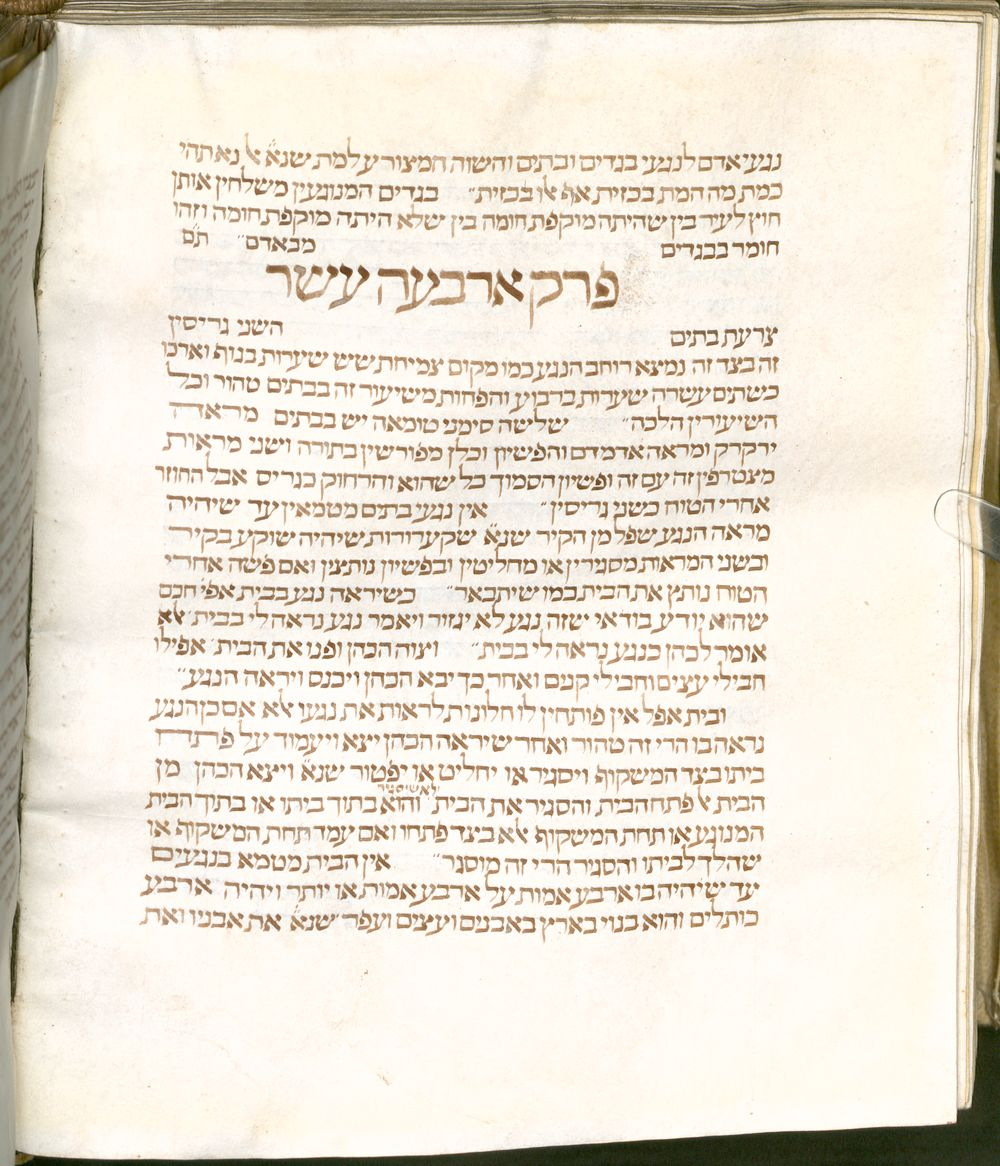 נגעי אדם לנגעי בגדים ובתים והשוה המצורע למת שנא׳ אל נא תהי
כמת מה המת בכזית אף אלו בכזית״ בגדים המנוגעין משלחין אותן
חוץ לעיר בין שהיתה מוקפת חומה בין שלא היתה מוקפת חומה וזהו
חומר בבגדים מבאדם״ תם
פרק ארבעה עשר
צרעת בתים השני גריסין
זה בצד זה נמצא רוחב הנגע כמו מקום צמיחת שש שערות בגוף וארכו
כשתים עשרה שערות ברבוע והפחות משיעור זה בבתים טהור וכל
השיעורין הלכה״ שלשה סימני טומאה יש בבתים מראה
ירקרק ומראה אדמדם והפשיון וכלן מפורשין בתורה ושני מראות
מצטרפין זה עם זה ופשיון הסמוך כל שהוא והרחוק כגריס אבל החוזר
אחרי הטוח כשני גריסין״ אין נגעי בתים מטמאין עד שיהיה
מראה הנגע שפל מן הקיר שנא׳ שקערורות שיהיה שוקע בקיר
ובשני המראות מסגירין או מחליטין ובפשיון נותצין ואם פשה אחרי
הטוח נותץ את הבית כמו שיתבאר״ כשיראה נגע בבית אפי׳ חכם
שהוא יודע בודאי שזה נגע לא יגזור ויאמר נגע נראה לי בבית אלא
אומר לכהן כנגע נראה לי בבית״ וצוה הכהן ופנו את הבית אפילו
חבילי עצים וחבילי קנים ואחר כך יבא הכהן ויכנס ויראה הנגע״
ובית אפל אין פותחין לו חלונות לראות את נגעו אלא אם כן הנגע
נראה בו הרי זה טהור ואחר שיראה הכהן ייצא ויעמוד על פתח
ביתו בצד המשקוף ויסגיר או יחליט או יפטור שנא׳ ויצא הכהן מן
הבית אל פתח הבית והסגיר את הבית ולא שיסגיר והוא בתוך ביתו או בתוך הבית
המנוגע או תחת המשקוף אלא בצד פתחו ואם עמד תחת המשקוף או
שהלך לביתו והסגיר הרי זה מוסגר״ אין הבית מטמא בנגעים
עד שיהיה בו ארבע אמות על ארבע אמות או יותר ויהיה ארבע
כותלים והוא בנוי בארץ באבנים ועצים ועפר שנא׳ את אבניו ואת